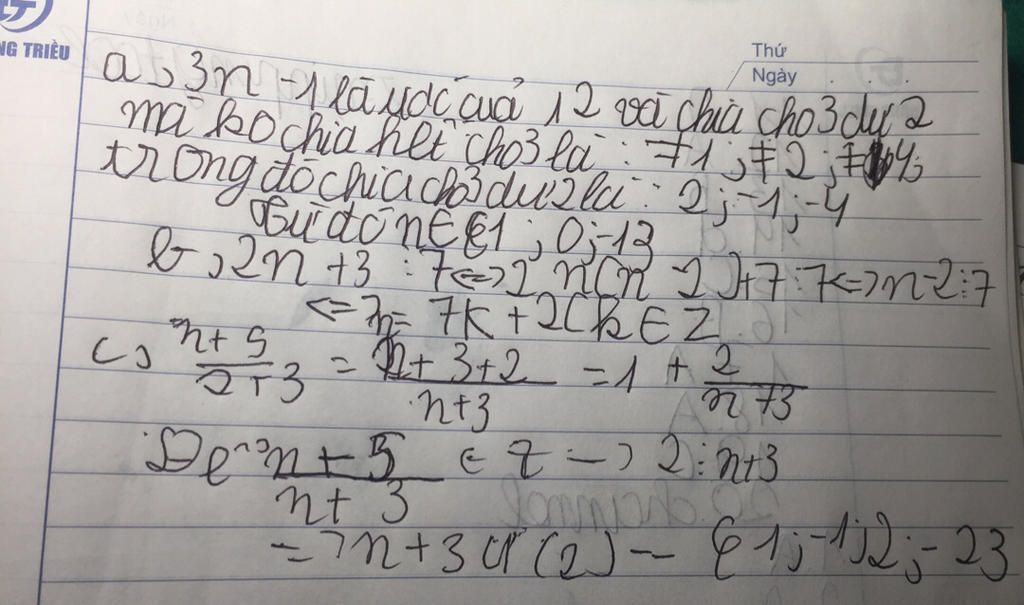 NG TRIỀU
Thứ
Ngày . .
a, 3n -1 là ước của 12 và chia cho 3 dư 2
mà ko chia hết cho 3 là : ∓1 ; ∓2 ; ∓4;
trong đó chia cho 3 dư 2 là : 2 ; -1 ; -4
từ đó n ∈ {1 ; 0 ; -1}
b, 2n + 3 ⋮ 7 <=> 2 n(n - 2) + 7 ⋮ 7 <=> n-2 ⋮ 7
<=> n = 7k + 2 ( k ∈ Z
c, n+5 / 2+3 = n+3+2 / n+3 = 1 + 2 / n+3
Để n+5 / n+3 ∈ Z -> 2 ⋮ n+3
=> n+3 Ư (2) - {1 ; -1 ; 2 ; -2}